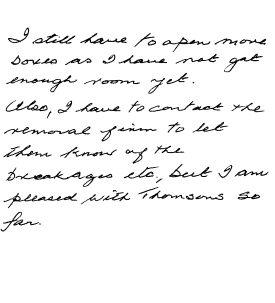 I still have to open more
boxes as I have not got
enough room yet.
Also, I have to contact the
removal firm to let
them know of the
breakages etc, but I am
pleased with Thomsons so
far.